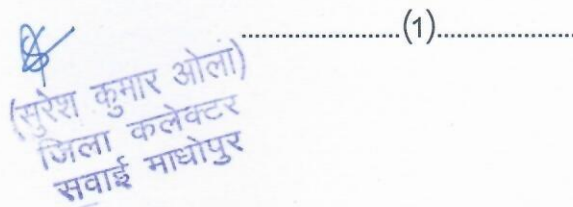 ....................(1)....................
(सुरेश कुमार ओला)
जिला कलेक्टर
सवाई माधोपुर